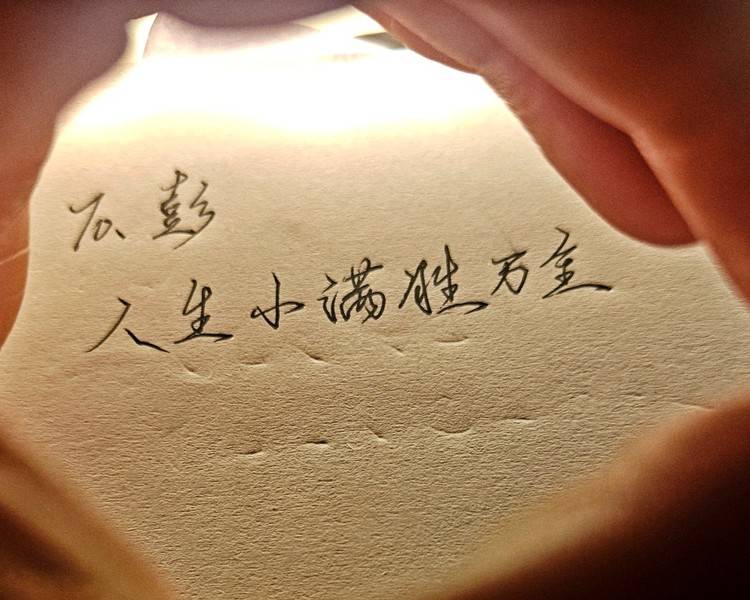 彭
人生小满胜万全